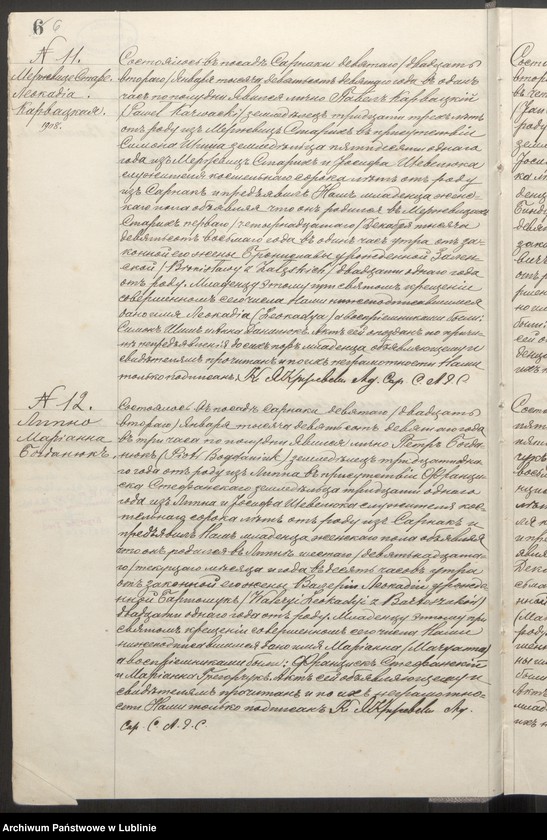 6 6
N 11.
Мержвице Старе.
Леокадія
Карвацкая.
1908.
Состоялось въ посадѣ Сарнаки девятаго /двадцать
втораго/ Января тысяча девятьсотъ девятаго года въ одинъ
часъ по полудни. Явился лично Павелъ Карвацкій
/Paweł Karwacki/ земледѣлецъ тридцати трехъ лѣтъ
отъ роду изъ Мержвицъ Старыхъ въ присутствіи
Симона Шиша земледѣльца пятидесяти одного
года изъ Мержвицъ Старыхъ и Іосифа Шевчюка
служителя костельнаго сорока лѣтъ отъ роду
изъ Сарнакъ и предъявилъ Намъ младенца женс-
каго пола объявляя что онъ родился въ Мержвицахъ
Старыхъ перваго /четырнадцатаго/ Декабря тысяча
девятьсотъ восьмаго года въ одинъ часъ утра отъ за-
конной его жены Брониславы урожденной Залев-
ской / двадцати одного года
отъ роду. Младенцу этому при святомъ крещеніи
совершенномъ сего числа Нами нижеподписавшимся
дано имя Леокадія /Leokadja/ а воспріемниками были:
Симонъ Шишъ и Анна Актъ сей
младенца объявляющему и
свидѣтелямъ прочитанъ и по ихъ неграмотности Нами
только подписанъ.
N 12.
Липно
Маріанна
Богданюкъ.
Состоялось въ посадѣ Сарнаки девятаго /двадцать
втораго/ Января тысяча девятьсотъ девятаго года
въ три часа по полудни. Явился лично Петръ Богда-
нюкъ /Piotr Bogdaniuk/ земледѣлецъ тридцати одна-
го года отъ роду изъ Липна въ присутствіи Францы-
ска Стефанскаго земледѣльца тридцати одного
года изъ Липна и Іосифа Шевчюка служителя кос-
тельнаго сорока лѣтъ отъ роду изъ Сарнакъ и
предъявилъ Намъ младенца женскаго пола объявляя
что онъ родился въ Липнѣ шестаго /девятнадцата-
го/ текущаго мѣсяца и года въ десять часовъ утра
отъ законной его жены Валеріи Леокадіи урожде-
нной /
двадцати одного года отъ роду. Младенцу этому при
святомъ крещеніи совершенномъ сего числа Нами
нижеподписавшимся дано имя Маріанна /Maryanna/
а воспріемниками были: Францыскъ Стефанскій
и Маріанна Грегорукъ. Актъ сей объявляющему и
свидѣтелямъ прочитанъ и по ихъ неграмотно-
сти Нами только подписанъ.
Archiwum Państwowe w Lublinie